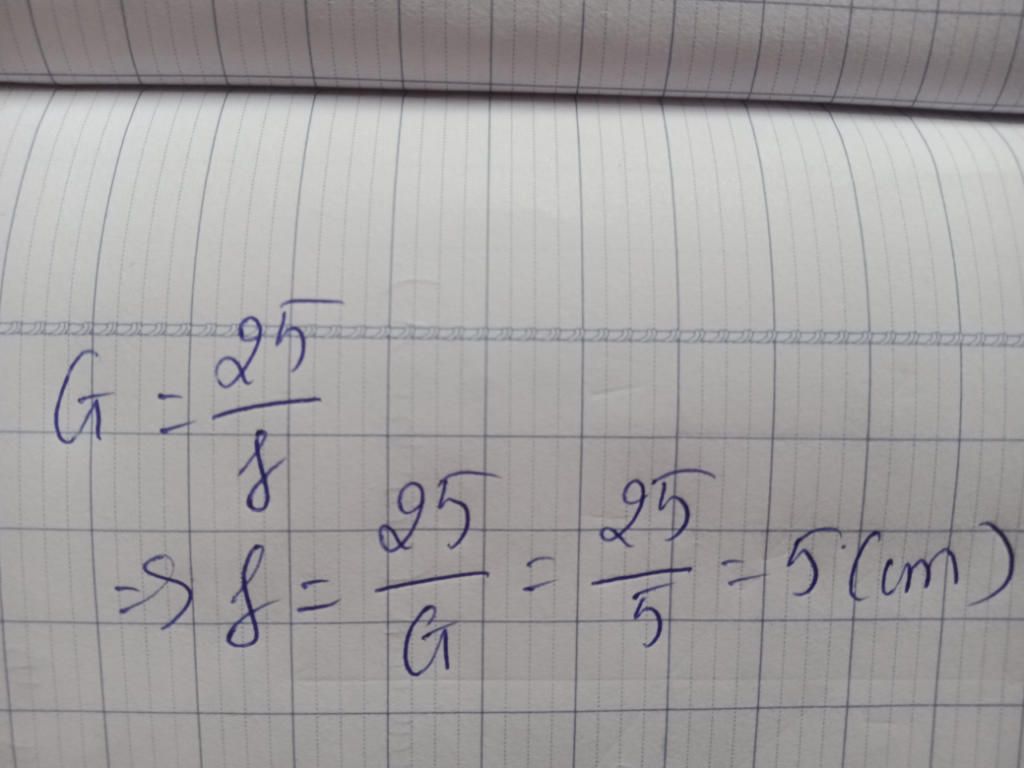 G = 25/f
=> f = 25/G = 25/5 = 5 (cm)